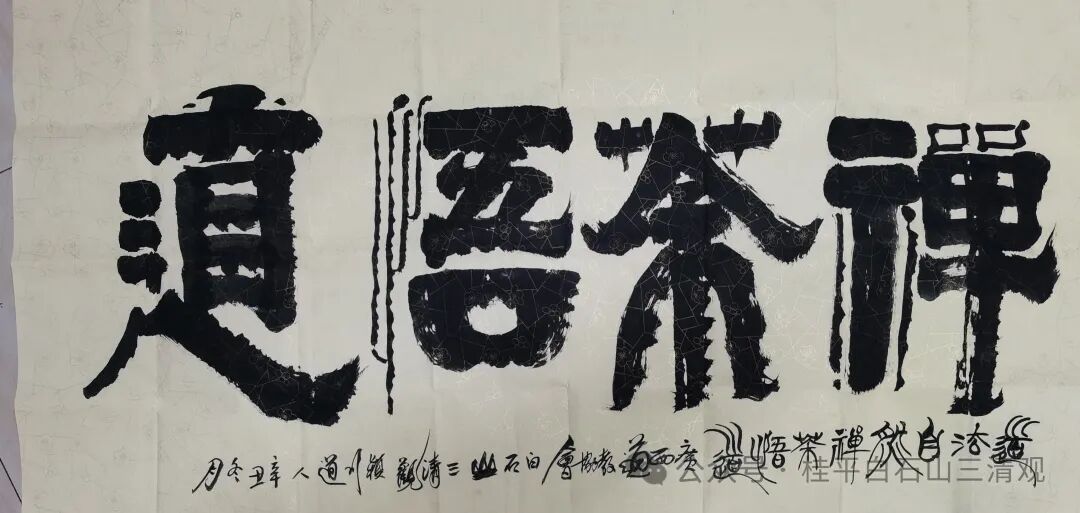 禪茶悟道
道法自然禪茶悟道廣西道教協會白石山三清觀鎮川道人辛丑冬月
公众号 · 桂平白石山三清观